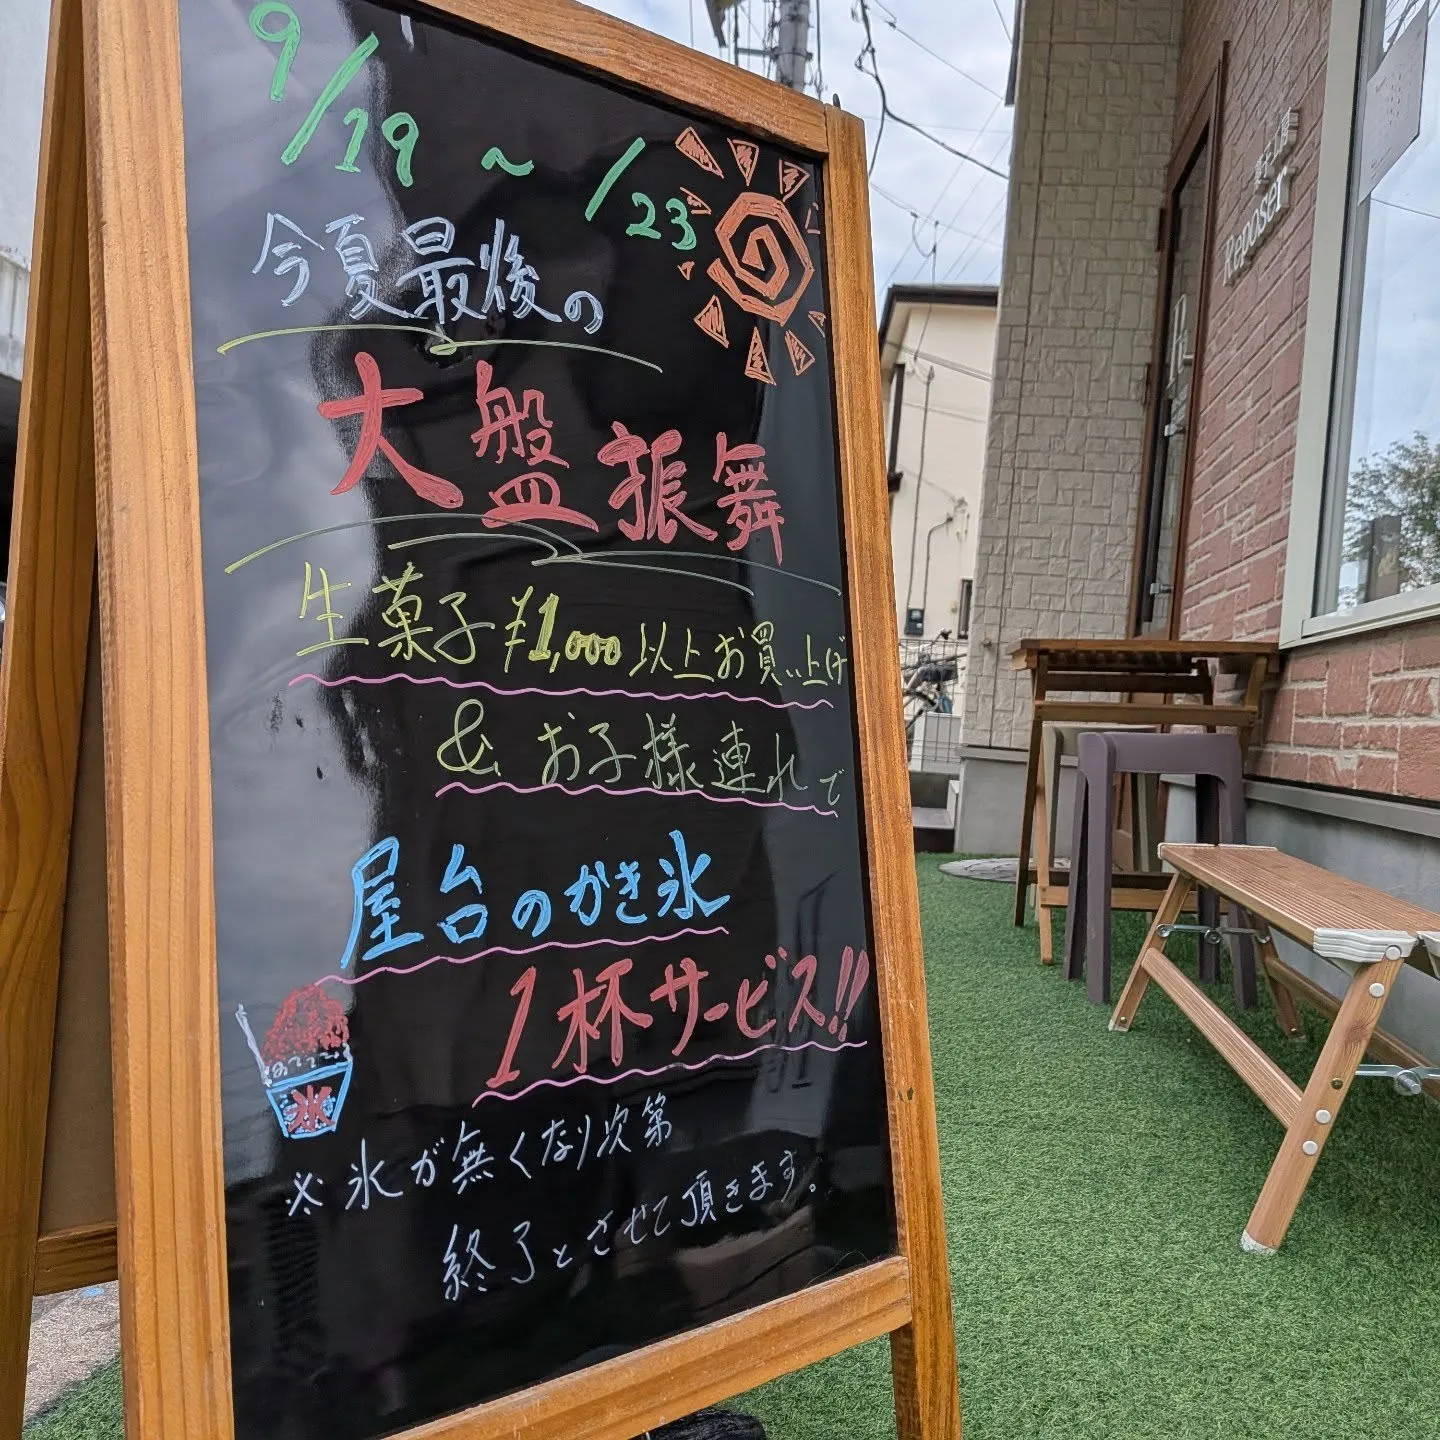 9/19 ~ /23
今夏最後の
大盤振舞
生菓子¥1,000以上お買い上げ
& お子様連れで
屋台のかき氷
1杯サービス!!
氷
※氷が無くなり次第
終了とさせて頂きます。
Reposer